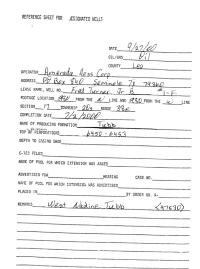 REFERENCE SHEET FOR DESIGNATED WELLS
DATE 9/27/00
OIL/GAS Oil
COUNTY Lea
OPERATOR Amerada Hess Corp
ADDRESS PO Box 840 Seminole TX 79360
LEASE NAME, WELL NO. Fred Turner Jr B #1-F
FOOTAGE LOCATION FROM THE N LINE AND FROM THE LINE
SECTION 17 TOWNSHIP 20s RANGE 38e
COMPLETION DATE
NAME OF PRODUCING FORMATION Tubb
TOP OF PERFORATIONS 6450 - 6453
DEPTH TO CASING SHOE
C-123 FILED
NAME OF POOL FOR WHICH EXTENSION WAS ASKED
ADVERTISED FOR HEARING CASE NO.
NAME OF POOL FOR WHICH EXTENSION WAS ADVERTISED
PLACED IN BY ORDER NO. R-
REMARKS West Nadine Tubb (47530)